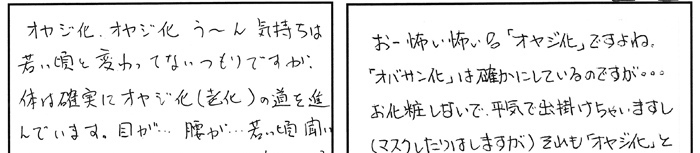 オヤジ化、オヤジ化 う〜ん 気持ちは
若い頃と変わってないつもりですが、
体は確実にオヤジ化(老化)の道を進
んでいます。目が… 腰が… 若い頃 聞い
おー怖い怖い「オヤジ化」ですよね。
「オバサン化」は確かにしているのですが。。。
お化粧しないで、平気で出掛けちゃいますし
(マスクしたりはしますが)それも「オヤジ化」と